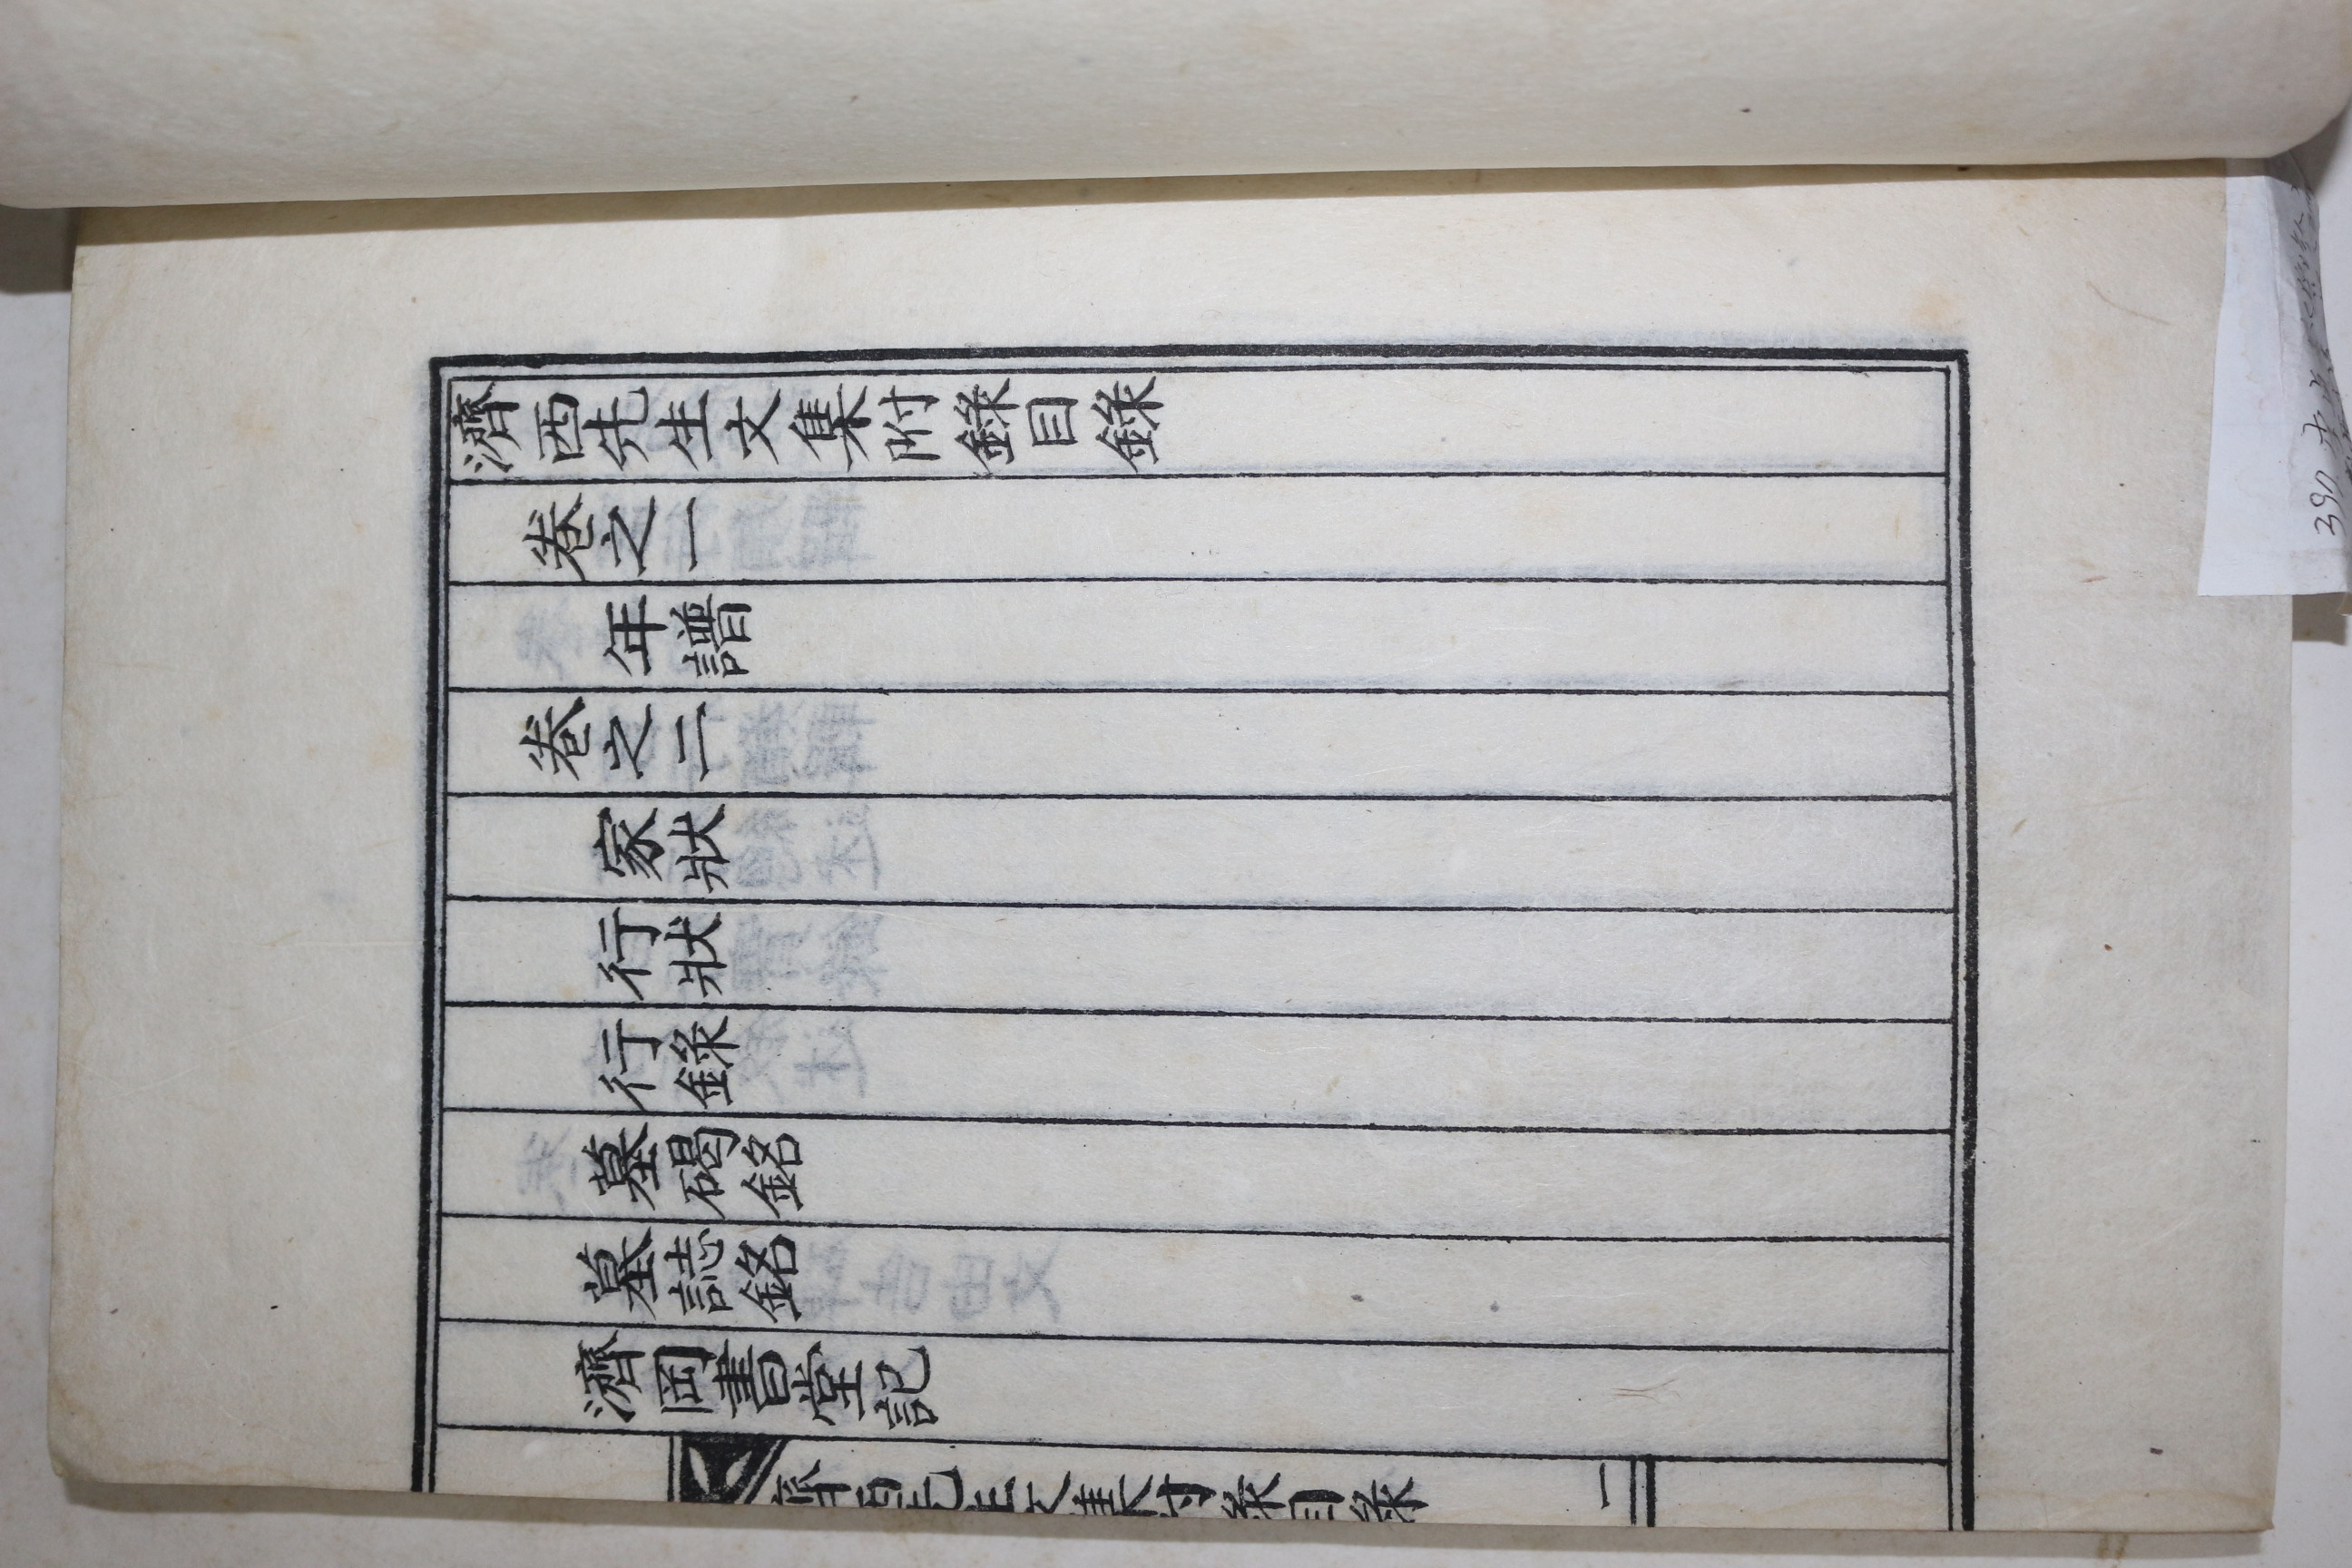 濟西先生文集附錄目錄
卷之一
年譜
卷之二
家狀
行狀
行錄
墓碣銘
墓誌銘
濟岡書堂記
濟西先生文集附錄目錄
一
390